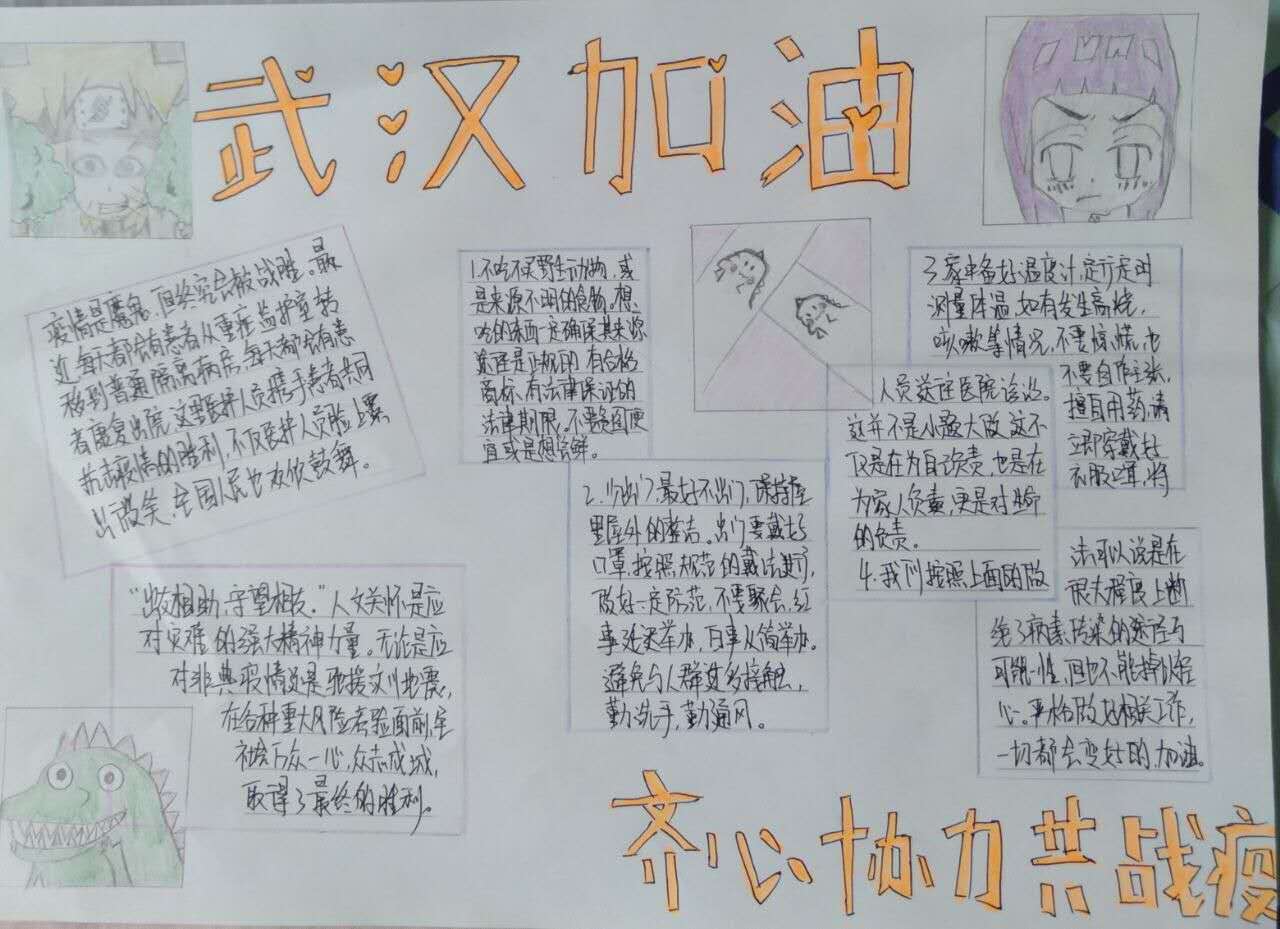 武汉加油
疫情是魔鬼，但终究会被战胜。最
近，每天都会有患者从重症监护室转
移到普通隔离病房，每天都会有患
者康复出院，这是医护人员携手患者共同
抗击疫情的胜利，不仅医护人员脸上露
出微笑，全国人民也欢欣鼓舞。
“出入相助，守望相扶。”人文关怀是应
对灾难的强大精神力量。无论是应
对非典疫情还是驰援汶川地震，
在各种重大风险考验面前，全
社会万众一心，众志成城，
取得了最终的胜利。
1.不吃不买野生动物，或
是来源不明的食物。想
吃的东西一定确保其来源
途径是正规的，有合格
商标，有法律保证的
法律期限。不要贪图便
宜或是想尝鲜。
2.少出门，最好不出门，保持屋
里屋外的整洁。出门要戴好
口罩，按照规范的戴法进行，
做好一定防范，不要聚会，红
事延迟举办，白事从简举办。
避免与人群过多接触，
勤洗手，勤通风。
3.家中备好温度计，定分定时
测量体温，如有发生高烧，
咳嗽等情况，不要惊慌，也
不要自作主张，
擅自用药，请
立即穿戴好
衣服口罩，将
人员送往医院诊治。
这并不是小题大做，这不
仅是在为自己负责，也是在
为家人负责，更是对生命
的负责。
4.我们按照上面的做
法可以说是在
很大程度上断
绝了病毒传染的途径与
可能性，但也不能掉以轻
心。严格做好相关工作，
一切都会变好的，加油。
齐心协力共战疫